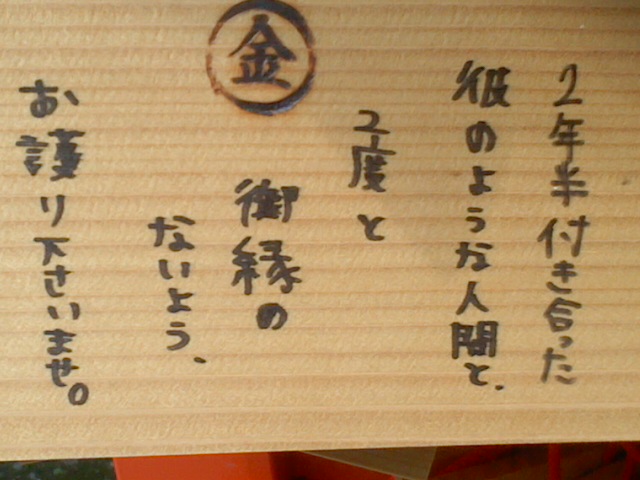 2年半付き合った
彼のような人間と、
2度と
金
御縁の
ないよう、
お護り下さいませ。